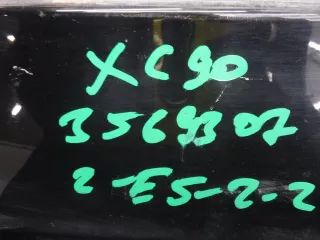 XC90
3569307
2-E5-2-2